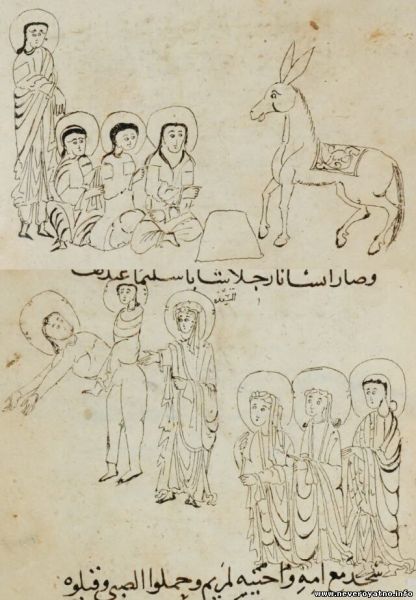 وصار انسانا رجلا شابا سليما
السيده
سجد مع امه واختيه لمريم وحملوا الصبي وقبلوه
www.neveroyatno.info